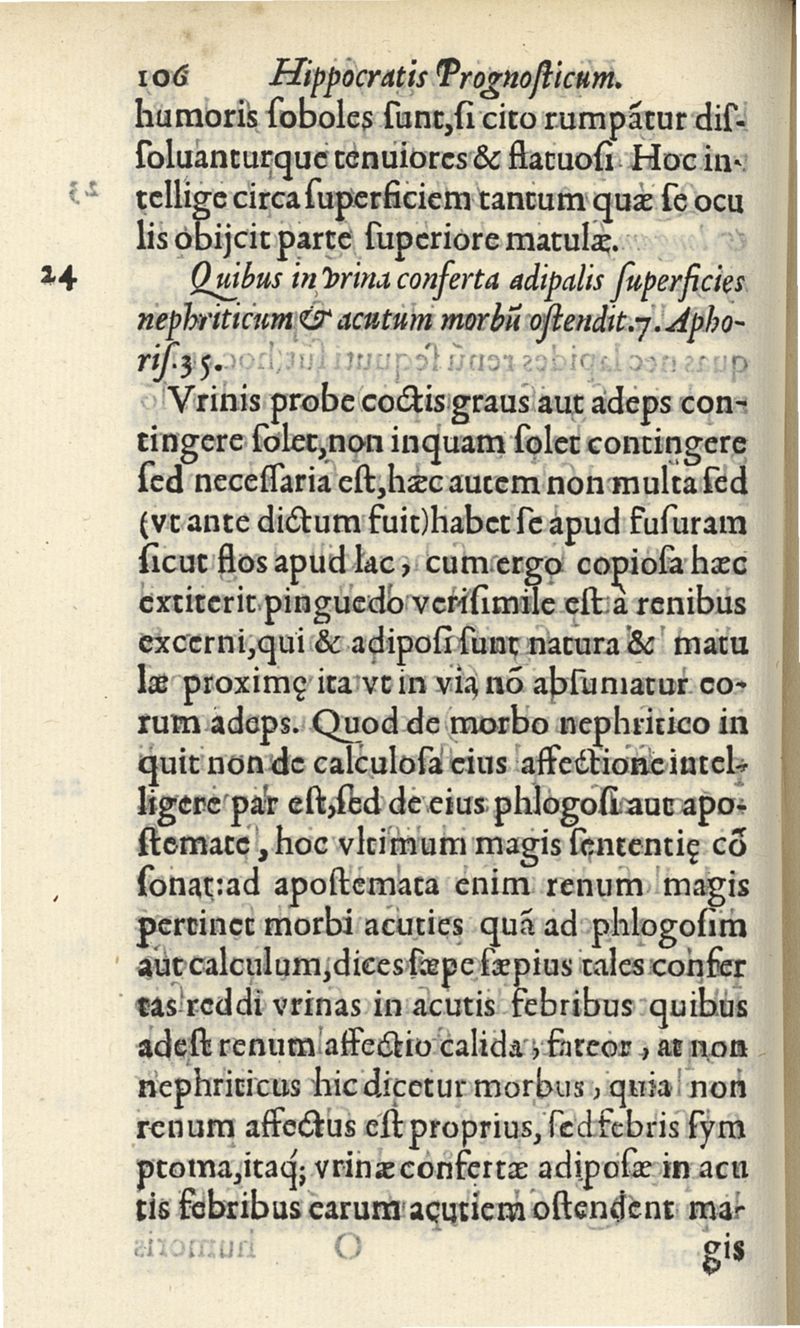 106 Hippocratis Prognoſticum.
humoris ſoboles ſunt,ſi cito rumpãtur diſ-
ſoluanturque tenuiores & flatuoſi. Hoc in-
tellige circa ſuperficiem tantum quæ ſe ocu
lis obijcit parte ſuperiore matulæ.
24 Quibus in vrina conferta adipalis ſuperficies
nephriticum & acutum morbũ oſtendit.7. Apho-
riſ.35.
Vrinis probe coctis graus aut adeps con-
tingere ſolet,non inquam ſolet contingere
ſed neceſſaria eſt,hæc autem non multa ſed
(vt ante dictum fuit)habet ſe apud fuſuram
ſicut flos apud lac, cum ergo copioſa hæc
extiterit pinguedo veriſimile eſt à renibus
excerni,qui & adipoſi ſunt natura & matu
læ proximę ita vt in via nõ abſumatur eo-
rum adeps. Quod de morbo nephritico in
quit non de calculoſa eius affectione intel-
ligere par eſt,ſed de eius phlogoſi aut apo-
ſtemate, hoc vltimum magis ſententię cõ
ſonat:ad apoſtemata enim renum magis
pertinet morbi acuties quã ad phlogoſim
aut calculum,dices ſæpe ſæpius tales confer
tas reddi vrinas in acutis febribus quibus
adeſt renum affectio calida, fateor, at non
nephriticus hic dicetur morbus, quia non
renum affectus eſt proprius, ſed febris ſym
ptoma,itaq́; vrinæ confertæ adipoſæ in acu
tis febribus earum acutiem oſtendent ma-
gis